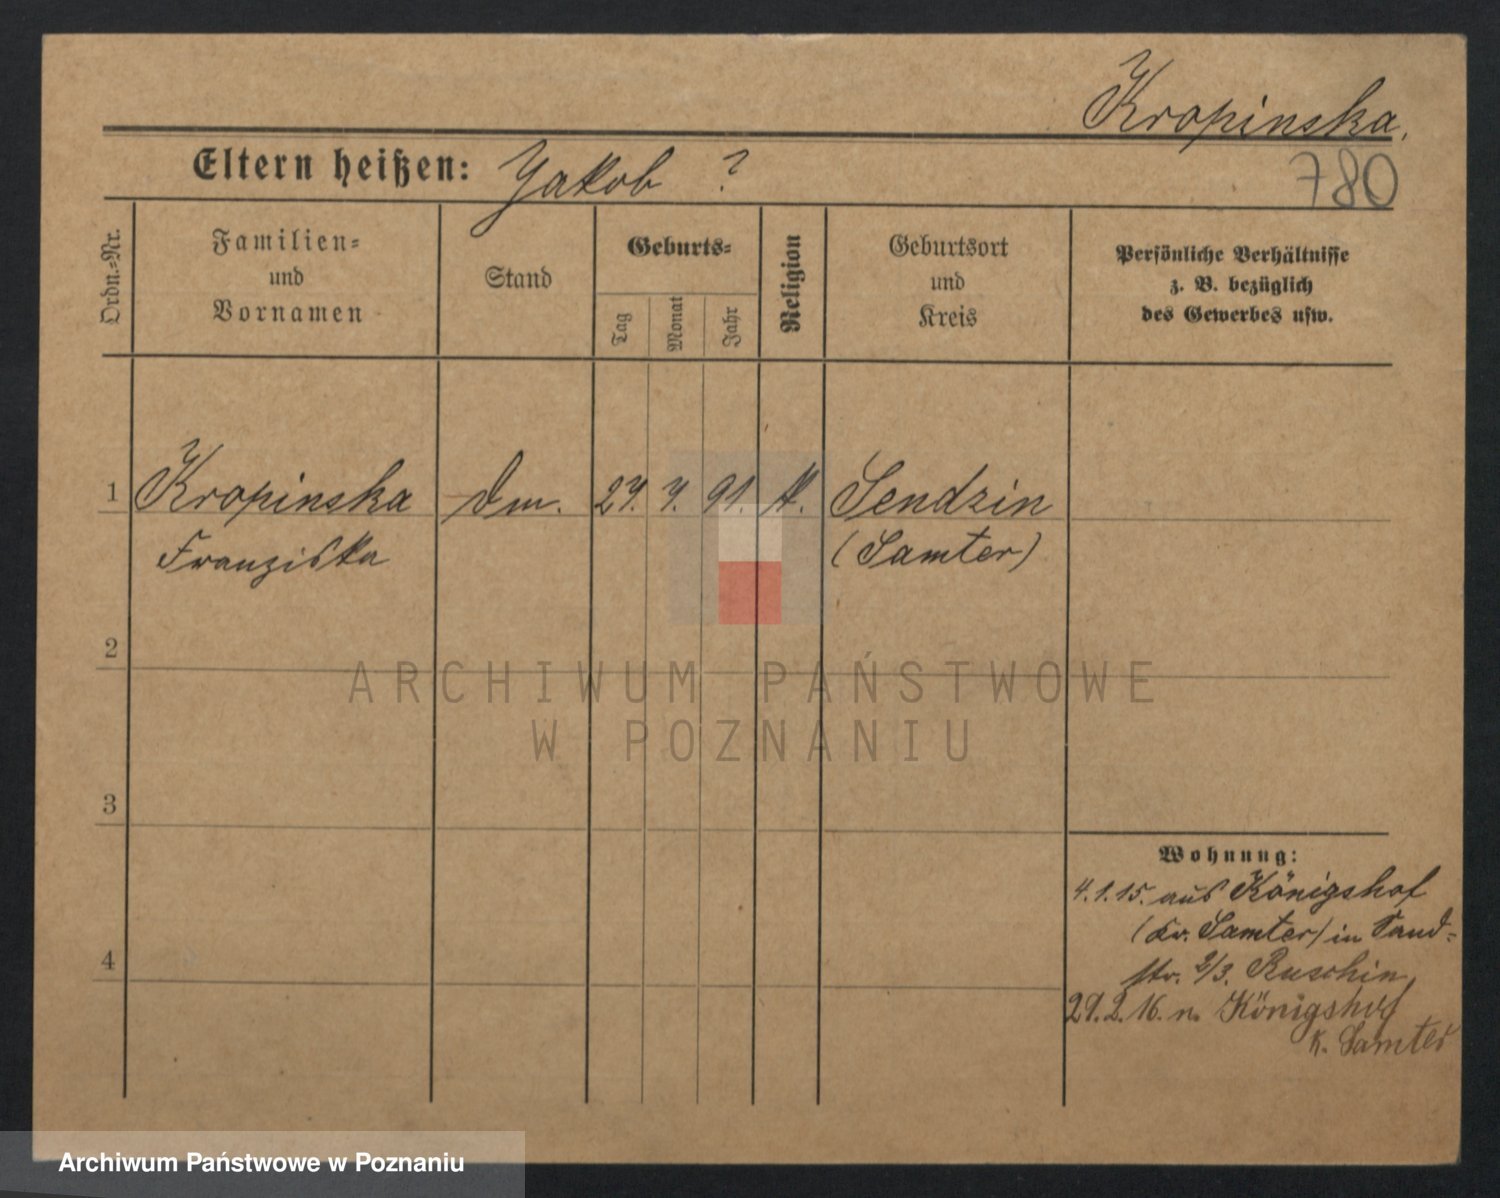 Kropinska.
780
Eltern heißen: Jakob ?
Ordn.-Nr.
Familien-
und
Vornamen
Stand
Geburts-
Tag
Monat
Jahr
Religion
Geburtsort
und
Kreis
Persönliche Verhältnisse
z. B. bezüglich
des Gewerbes usw.
1 Kropinska 91. k. Sendzin
Franziska (Samter)
2
3
4
Wohnung:
4.1.15. aus Königshof
(Kr. Samter) in Sand-
str. 2/3. Ruschin
29.2.16. n. Königshof
K. Samter
ARCHIWUM PAŃSTWOWE
W POZNANIU
Archiwum Państwowe w Poznaniu